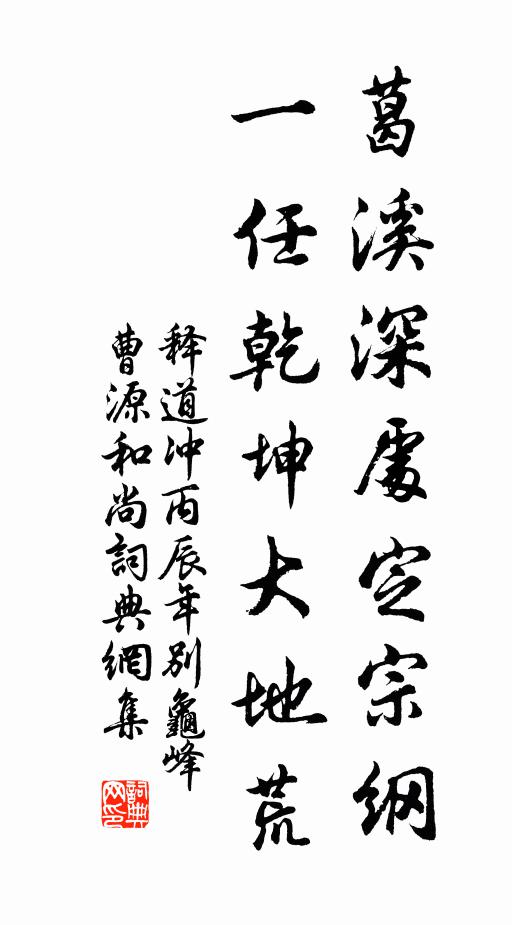 葛溪深處定宗纲
一任乾坤大地荒
释道冲丙辰年别龜峰
曹源和尚詞典網集
詞典网印